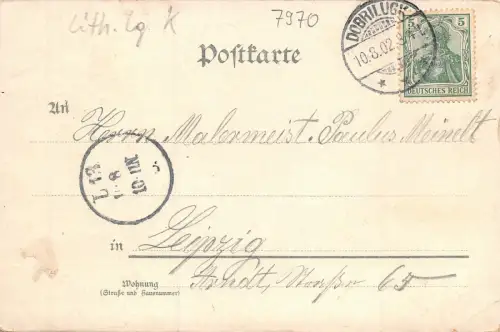 Lith. Lg K
7970
Postkarte
DOBRILUGK
10.8.02.
5 5
DEUTSCHES REICH
An
Herrn Malermeist. Paulus Meinelt
L 13
8
10-11N
in Leipzig
Wohnung
(Straße und Hausnummer)
Arndt, Straße 65